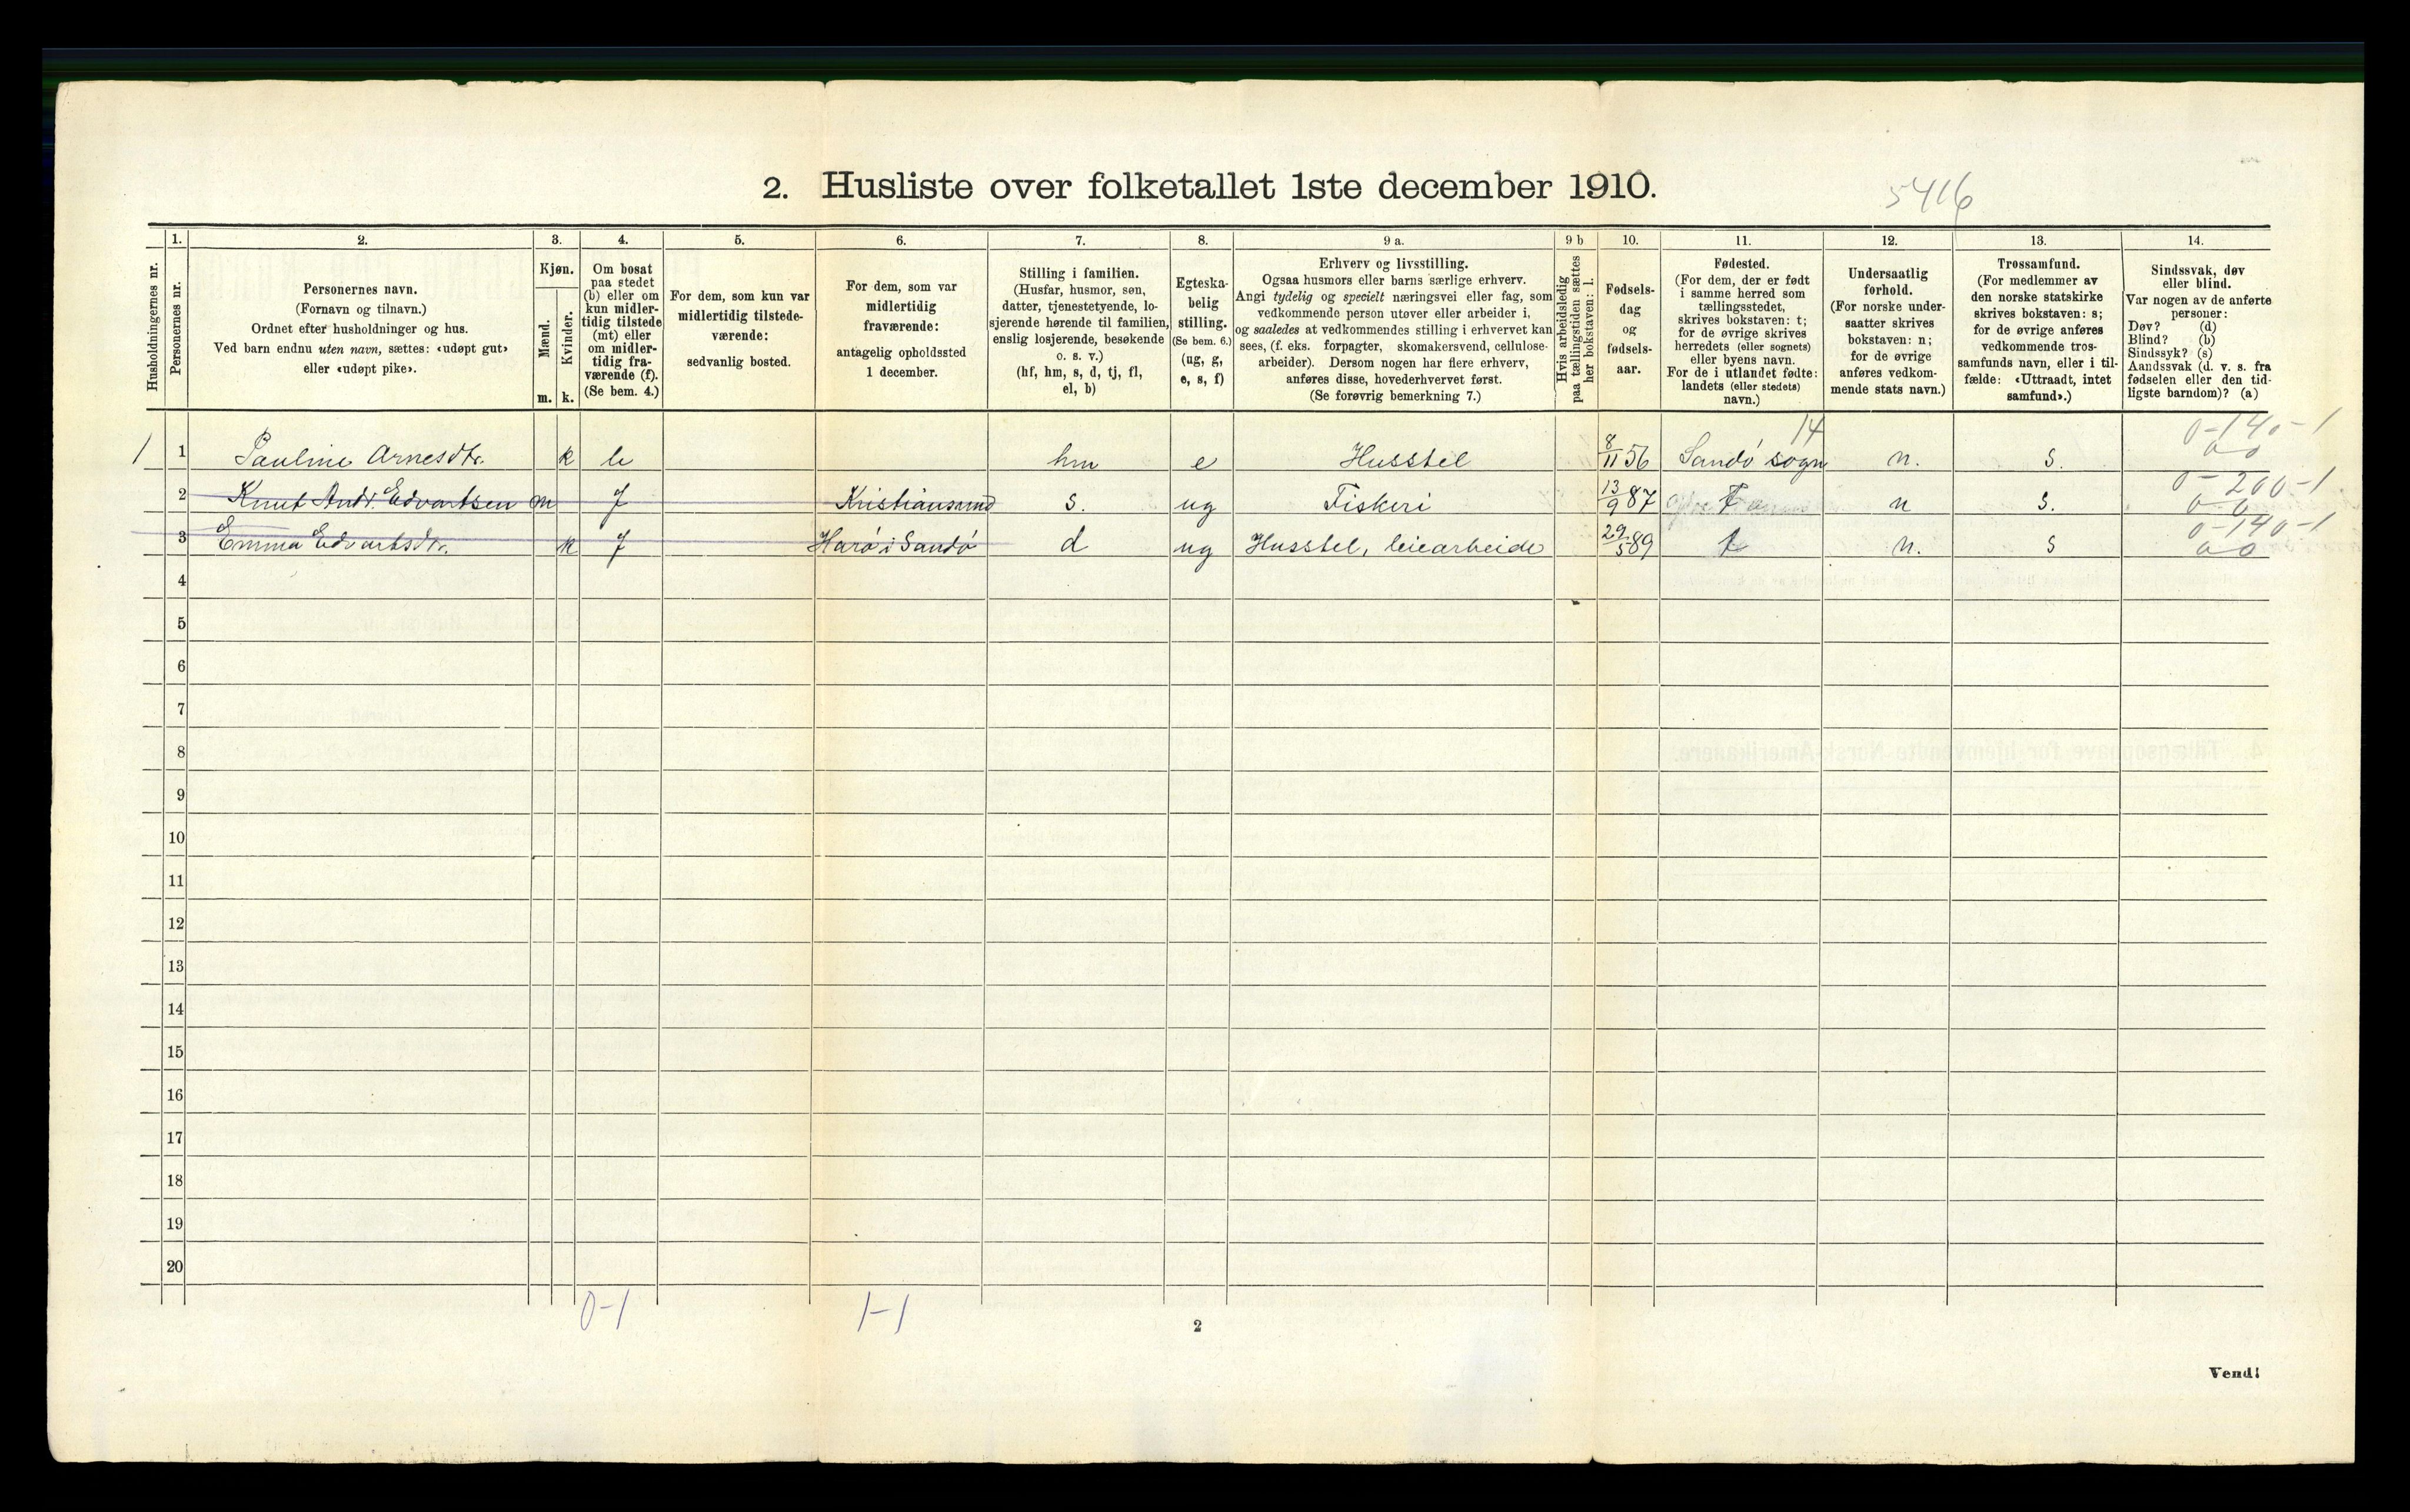 2. Husliste over folketallet 1ste december 1910.
5416
Husholdningernes nr.
1.
Personernes nr.
2.
Personernes navn.
(Fornavn og tilnavn.)
Ordnet efter husholdninger og hus.
Ved barn endnu uten navn, sættes: «udøpt gut»
eller «udøpt pike».
3.
Kjøn.
Mænd.
Kvinder.
m. k.
4.
Om bosat
paa stedet
(b) eller om
kun midler-
tidig tilstede
(mt) eller
om midler-
tidig fra-
værende (f).
(Se bem. 4.)
5.
For dem, som kun var
midlertidig tilstede-
værende:
sedvanlig bosted.
6.
For dem, som var
midlertidig
fraværende:
antagelig opholdssted
1 december.
7.
Stilling i familien.
(Husfar, husmor, søn,
datter, tjenestetyende, lo-
sjerende hørende til familien,
enslig losjerende, besøkende
o. s. v.)
(hf, hm, s, d, tj, fl,
el, b)
8.
Egteska-
belig
stilling.
(Se bem. 6.)
(ug, g,
e, s, f)
9 a.
Erhverv og livsstilling.
Ogsaa husmors eller barns særlige erhverv.
Angi tydelig og specielt næringsvei eller fag, som
vedkommende person utøver eller arbeider i,
og saaledes at vedkommendes stilling i erhvervet kan
sees, (f. eks. forpagter, skomakersvend, cellulose-
arbeider). Dersom nogen har flere erhverv,
anføres disse, hovederhvervet først.
(Se forøvrig bemerkning 7.)
9 b
Hvis arbeidsledig
paa tællingstiden sættes
her bokstaven: l.
10.
Fødsels-
dag
og
fødsels-
aar.
11.
Fødested.
(For dem, der er født
i samme herred som
tællingsstedet,
skrives bokstaven: t;
for de øvrige skrives
herredets (eller sognets)
eller byens navn.
For de i utlandet fødte:
landets (eller stedets)
navn.)
12.
Undersaatlig
forhold.
(For norske under-
saatter skrives
bokstaven: n;
for de øvrige
anføres vedkom-
mende stats navn.)
13.
Trossamfund.
(For medlemmer av
den norske statskirke
skrives bokstaven: s;
for de øvrige anføres
vedkommende tros-
samfunds navn, eller i til-
fælde: «Uttraadt, intet
samfund».)
14.
Sindssvak, døv
eller blind.
Var nogen av de anførte
personer:
Døv? (d)
Blind? (b)
Sindssyk? (s)
Aandssvak (d. v. s. fra
fødselen eller den tid-
ligste barndom)? (a)
1 1 Pauline Arnesdtr. k b hm e Husstel 8/11 56 Sandö sogn 14 n. s. 0-140-1
0 0
2 Knut Andr. Edvartsen m f Kristiansund s. ug Fiskeri 13/9 87 t n s. 0-200-1
0-0
3 Emma Edvartsdtr. k f Harö i Sandö d ug Husstel, leiearbeide 29/5 89 t n. s 0-140-1
0 0
4
5
6
7
8
9
10
11
12
13
14
15
16
17
18
19
20
0-1 1-1
2
Vend!